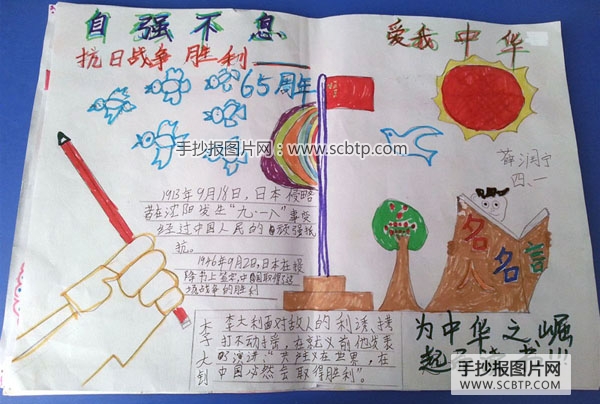 自强不息
抗日战争胜利
65周年
爱我中华
手抄报图片网:www.scbtp.com
四、一
1913年9月18日,日本侵略
者在沈阳发生“九·一八”事变
经过中国人民的 强抵
抗。
1946年9月2日,日本在投
降书上签定,中国取得了这
场战争的胜利
名人名言
李大钊
李大利面对敌人的利诱、拷
打不动摇,在就义前他发表
的演讲:“共产主义在世界,在
中国必然会取得胜利”。
为中华之崛
起 读书!!!
手抄报图片网
SCBTP.COM